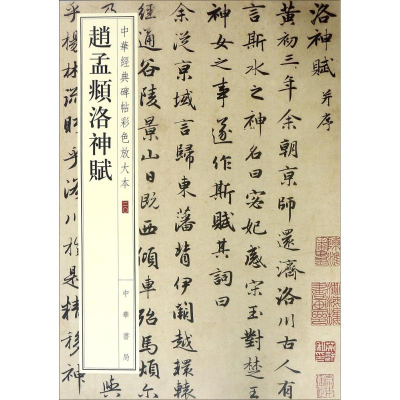 洛神賦 并序
黃初三年余朝京師還濟洛川古人有
言斯水之神名曰宓妃感宋玉對楚王
神女之事遂作斯賦其詞曰
余從京域言歸東藩背伊闕越轘轅
經通谷陵景山日既西傾車殆馬煩尒
中華經典碑帖彩色放大本
趙孟頫洛神賦
中華書局
乃
與
乎楊林流眄乎洛川於是精移神